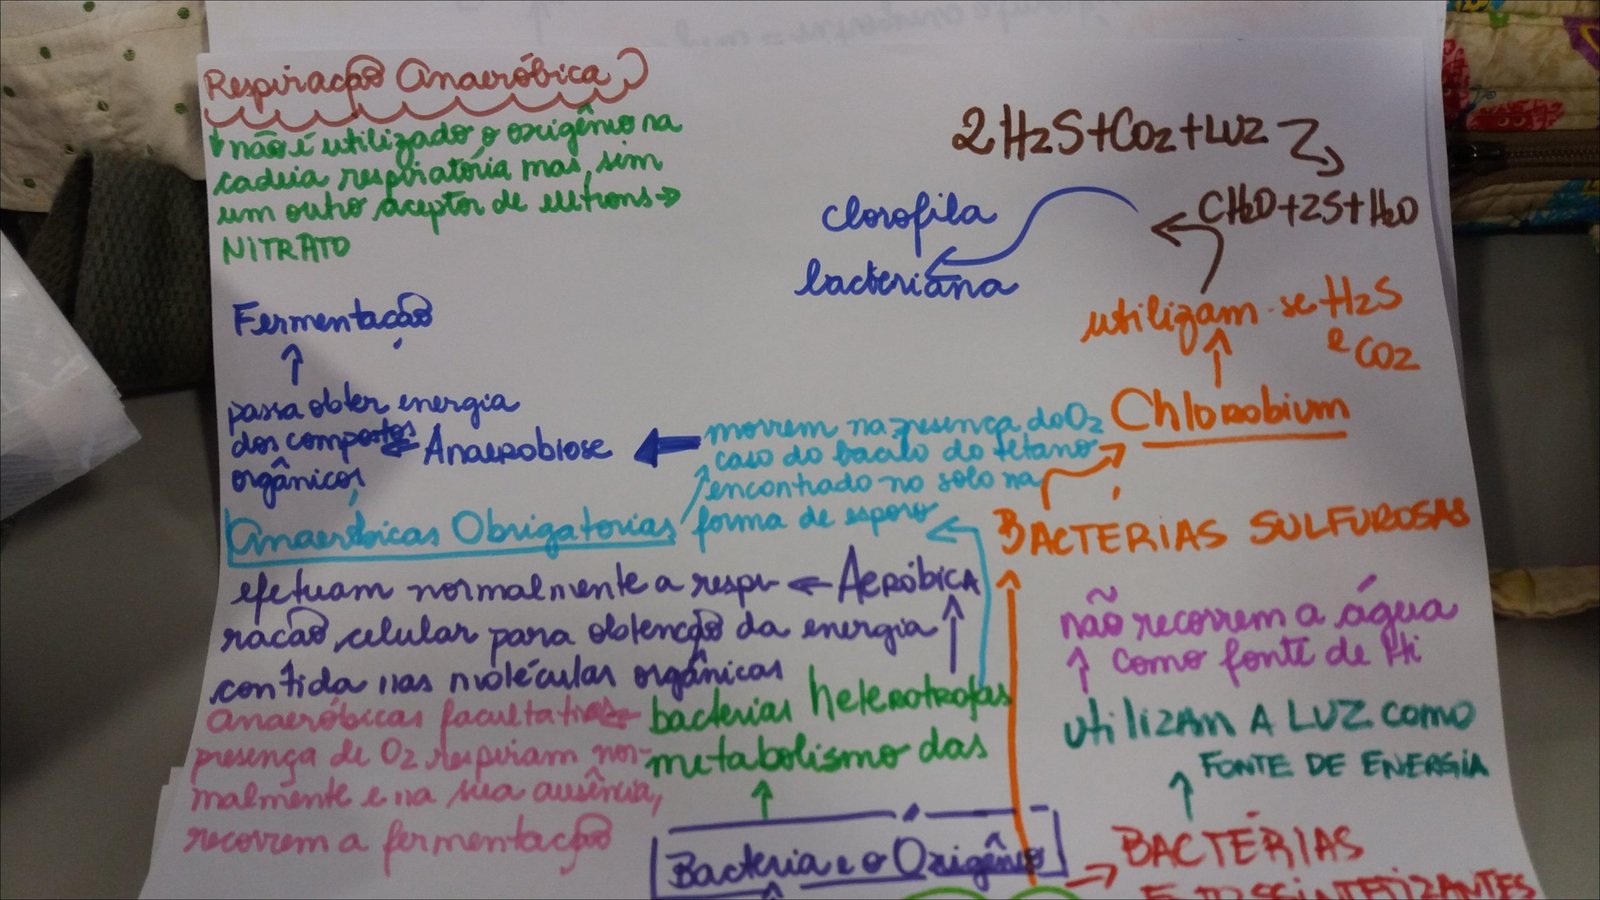 Respiração Anaeróbica
não é utilizado o oxigênio na
cadeia respiratória mas, sim
um outro aceptor de elétrons →
NITRATO
2H2S+CO2+LUZ
CH2O+2S+H2O
clorofila
bacteriana
utilizam-se H2S
e CO2
Chlorobium
BACTÉRIAS SULFUROSAS
Fermentação
passa obter energia
dos compostos
orgânicos
Anaerobiose
morrem na presença do O2
caso do bacilo do tétano
encontrado no solo na
forma de esporo
Anaeróbicas Obrigatorias
AERÓBICA
efetuam normalmente a respi
racão celular para obtenção da energia
contida nas moléculas orgânicas
anaeróbicas facultativas
presença de O2 respiram nor-
malmente e na sua ausência,
recorrem a fermentação
bacterias heterotrofas
metabolismo das
Bacteria e o Oxigênio
não recorrem a água
como fonte de Hi
utilizam A LUZ como
FONTE DE ENERGIA
BACTÉRIAS